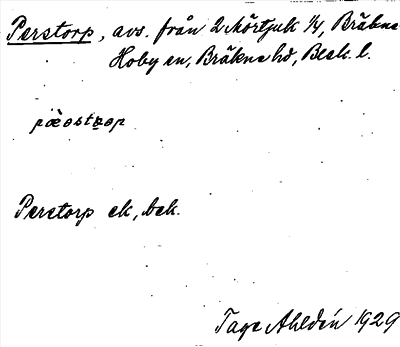 Perstorp, avs. från 2 Mörtjuk 1/4, Bräkne
Hoby sn, Bräkne hd, Blek. l.
pæ̀ostrop
Perstorp ek, bek.
Tage Ahldén 1929